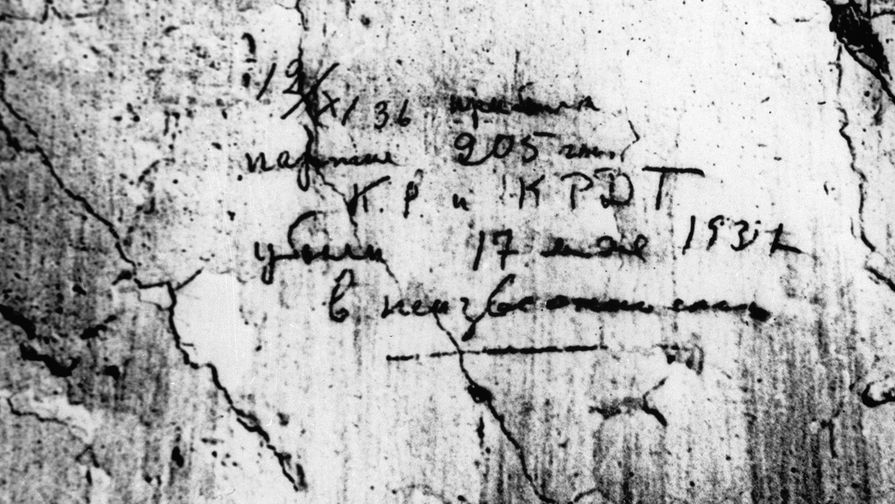 12/XI 36 прибыли
партия 205 чел.
К.Р. и КРДТ
убыли 17 июля 1937
в неизвестном